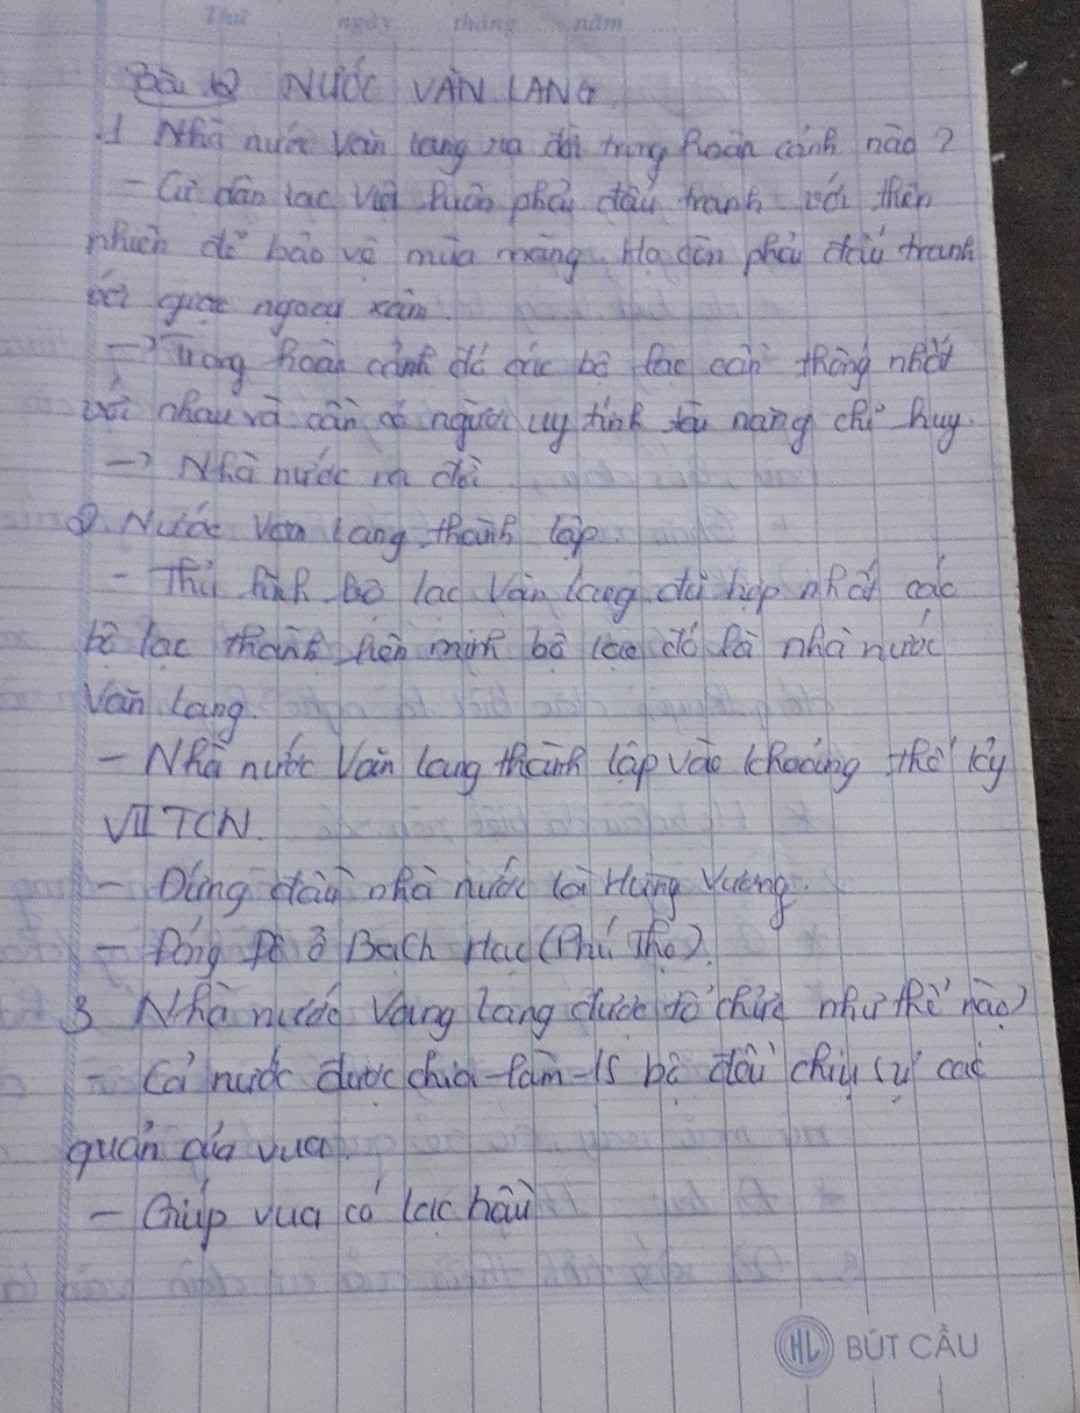 Thứ ngày tháng năm
Bài 12 NƯỚC VĂN LANG
1 Nhà nước Văn lang ra đời trong hoàn cảnh nào ?
- Cư dân lạc Việt luôn phải đấu tranh với thiên
nhiên để bảo vệ mùa màng. Họ còn phải đấu tranh
với giặc ngoại xâm.
-> Trong hoàn cảnh đó các bộ lạc cần thống nhất
với nhau và cần có người uy tính tài năng chỉ huy.
-> Nhà nước ra đời
2. Nước Văn Lang thành lập
- Thủ lĩnh bộ lạc Văn Lang đã hợp nhất các
bộ lạc thành liên minh bộ lạc đó là nhà nước
Văn Lang.
- Nhà nước Văn lang thành lập vào khoảng thế kỷ
VII TCN.
- Đứng đầu nhà nước là Hùng Vương.
- Đóng Đô ở Bạch Hạc (Phú Thọ).
3 Nhà nước Vang lang được tổ chức như thế nào?
- Cả nước được chia làm 15 bộ đều chịu sự cai
quản của vua.
- Giúp vua có lạc hậu
HL BÚT CẦU